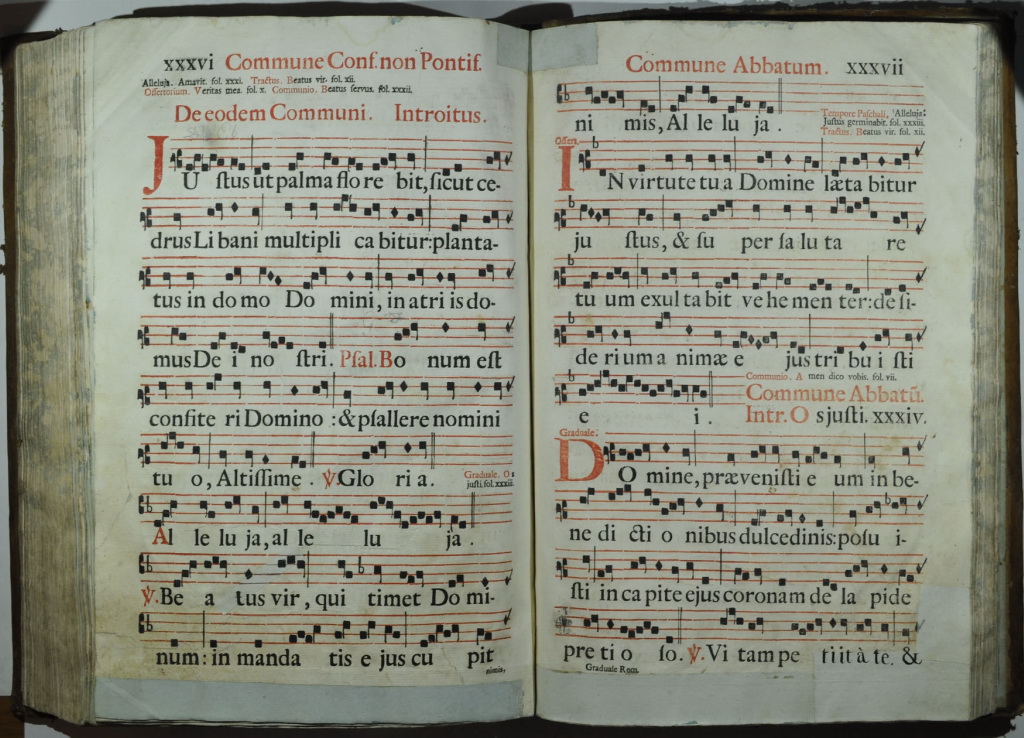 xxxvi Commune Conſ. non Pontiſ.
Alleluja. Amavit. fol. xxxi. Tractus. Beatus vir. fol. xii.
Offertorium. Veritas mea. fol. x. Communio. Beatus ſervus. fol. xxxii.
De eodem Communi. Introitus.
JU ſtus ut palma flo re bit, ſicut ce-
drus Li bani multipli ca bitur: planta-
tus in do mo Do mini, in atri is do-
mus De i no ſtri. Pſal. Bo num eſt
confite ri Domino : & pſallere nomini
tu o, Altiſſime . ℣. Glo ri a.
Graduale. Os
juſti. fol. xxxiii
Al le lu ja, al le lu ja .
℣. Be a tus vir, qui timet Do mi-
num : in manda tis e jus cu pit
nimis,
Commune Abbatum. xxxvii
ni mis, Al le lu ja .
Tempore Paſchali, Alleluja:
Juſtus germinabit. fol. xxxiii.
Tractus. Beatus vir. fol. xii.
Offert.
IN virtute tu a Domine læta bitur
ju ſtus, & ſu per ſa lu ta re
tu um exul ta bit ve he men ter: de ſi-
de ri um a nimæ e jus tri bu i ſti
Communio. A men dico vobis. fol. vii.
e i .
Commune Abbatū.
Intr. O s juſti. xxxiv.
Graduale.
DO mine, præveniſti e um in be-
ne di cti o nibus dulcedinis: poſu i-
ſti in ca pite ejus coronam de la pide
pre ti o ſo. ℣. Vi tam pe tiit à te, &
Graduale Rom.